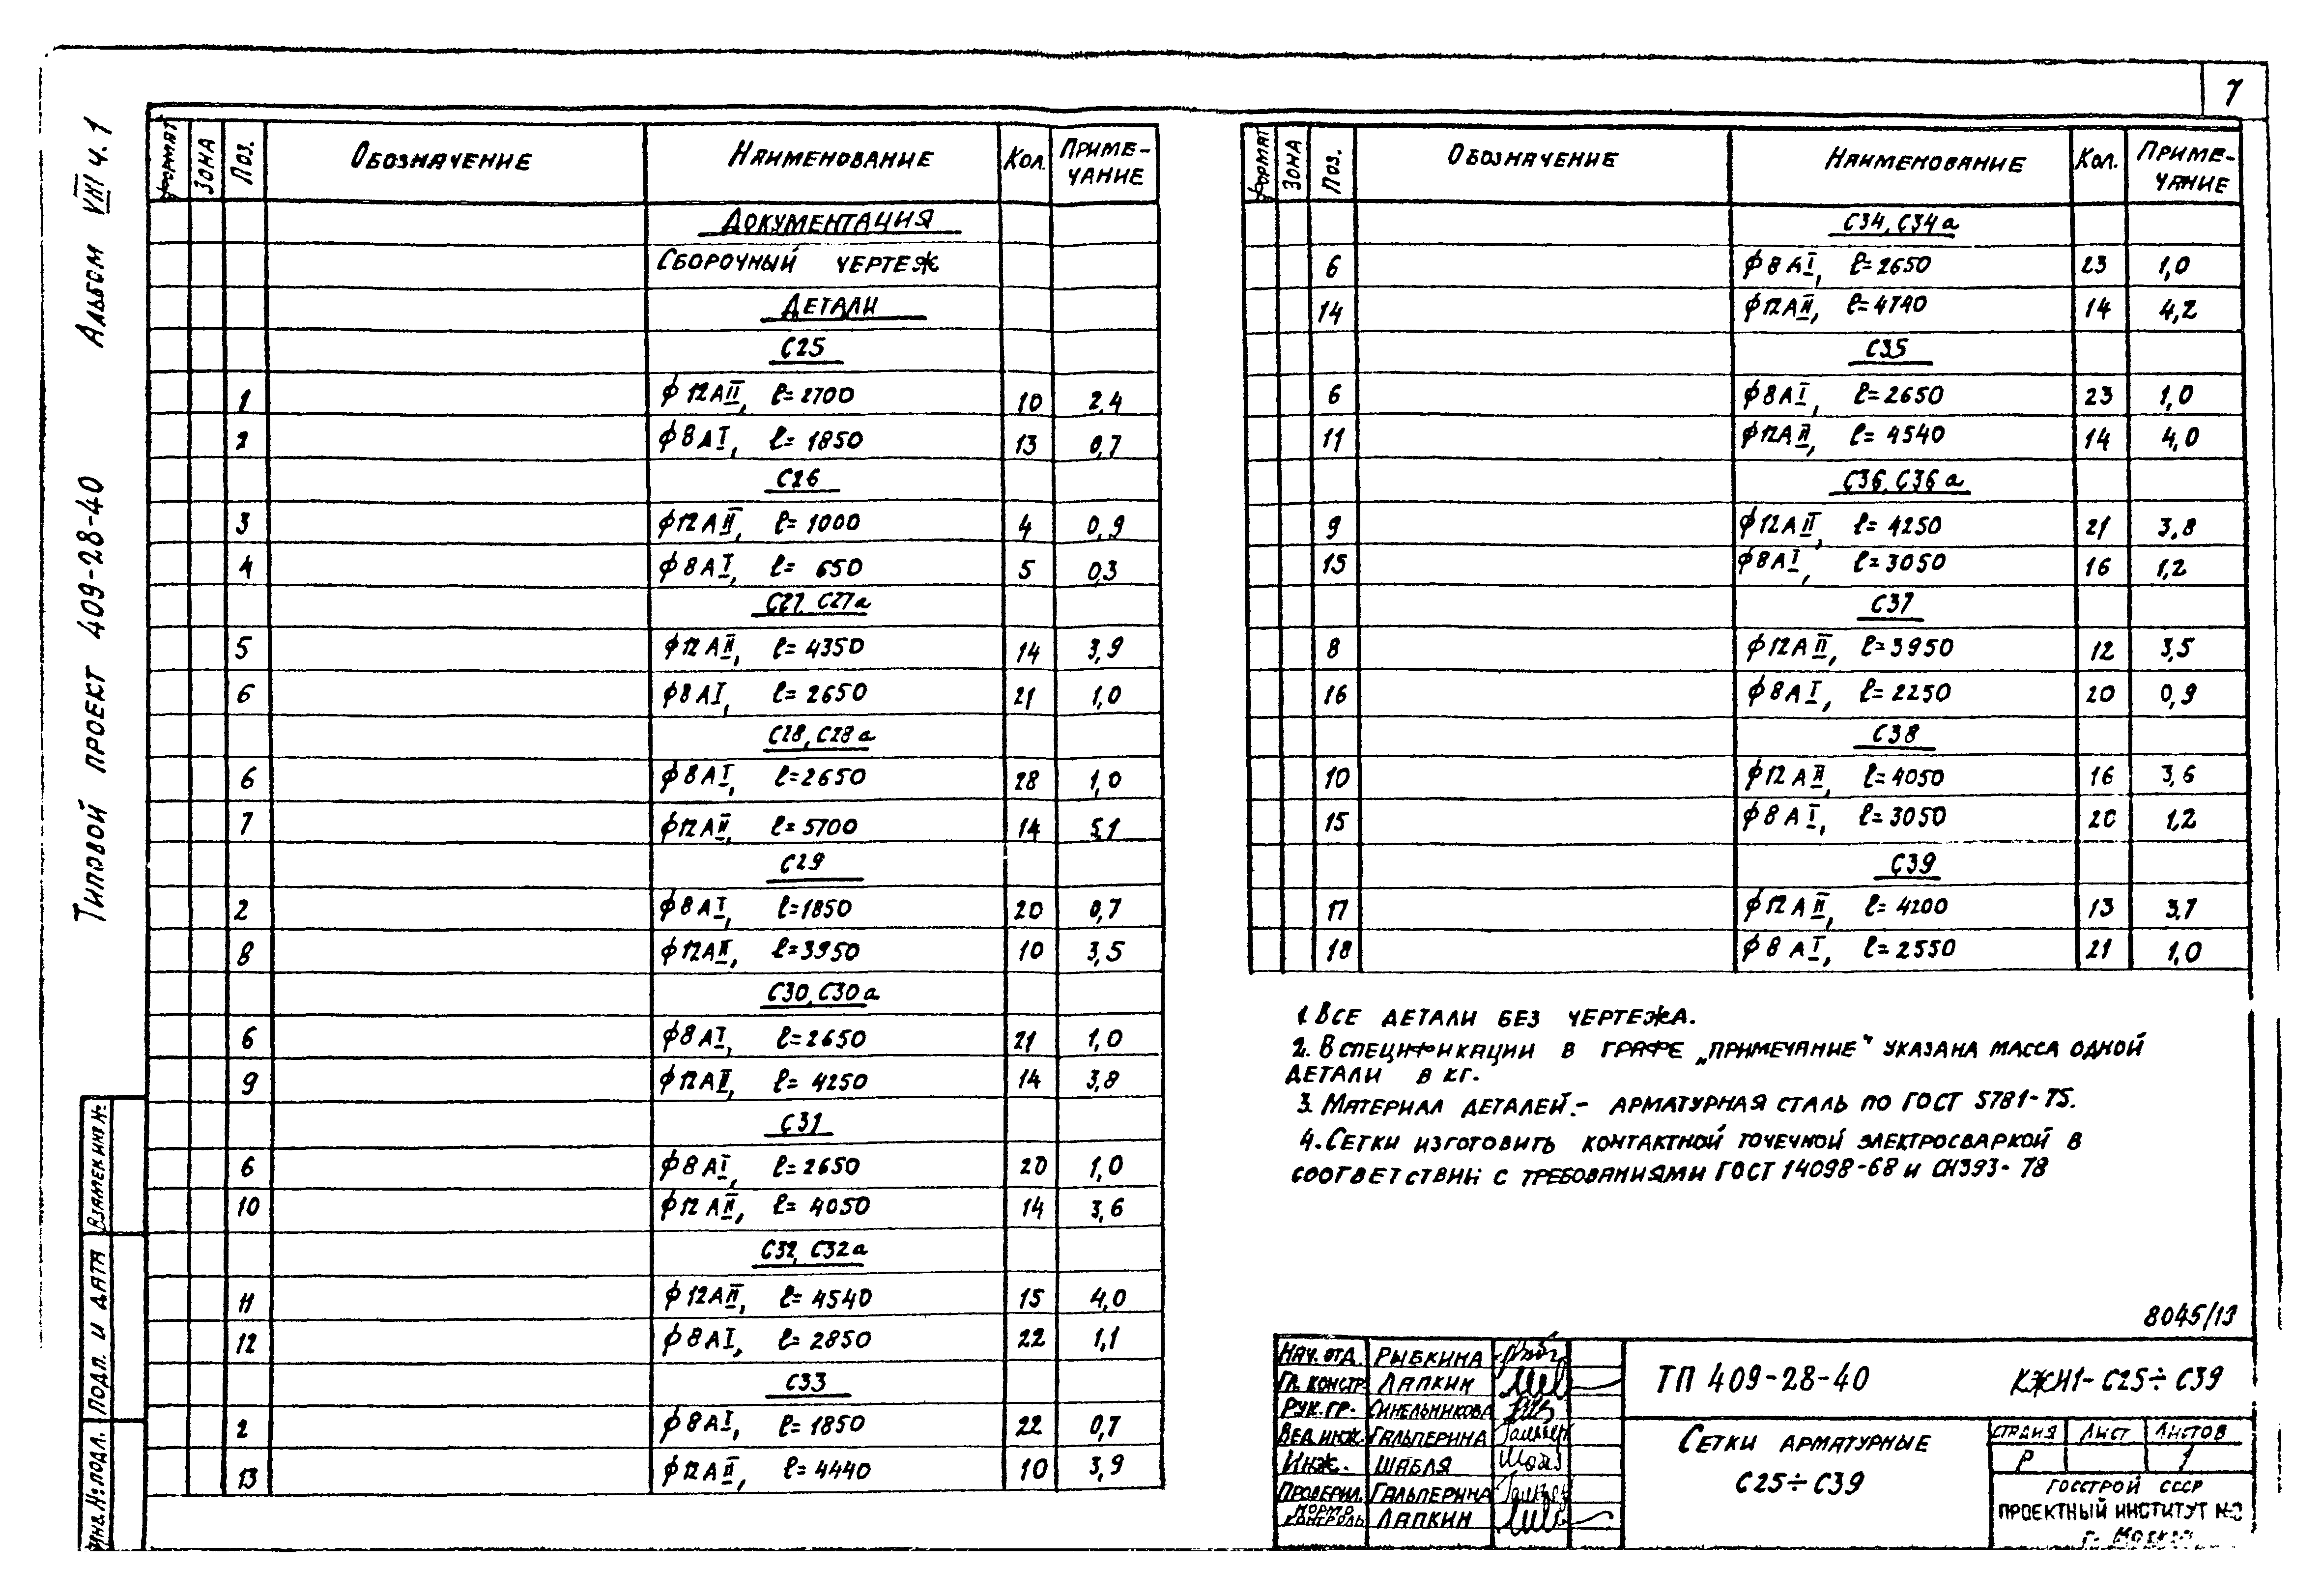 7
Типовой проект 409-28-40 Альбом VIII ч.1
Формат Зона Поз. Обозначение Наименование Кол. Примечание
Документация
Сборочный чертеж
Детали
С25
1 ф12АII, ℓ=2700 10 2,4
2 ф8АI, ℓ=1850 13 0,7
С26
3 ф12АII, ℓ=1000 4 0,9
4 ф8АI, ℓ=650 5 0,3
С27, С27а
5 ф12АII, ℓ=4350 14 3,9
6 ф8АI, ℓ=2650 21 1,0
С28, С28а
6 ф8АI, ℓ=2650 28 1,0
7 ф12АII, ℓ=5700 14 5,1
С29
2 ф8АI, ℓ=1850 20 0,7
8 ф12АII, ℓ=3950 10 3,5
С30, С30а
6 ф8АI, ℓ=2650 21 1,0
9 ф12АII, ℓ=4250 14 3,8
С31
6 ф8АI, ℓ=2650 20 1,0
10 ф12АII, ℓ=4050 14 3,6
С32, С32а
11 ф12АII, ℓ=4540 15 4,0
12 ф8АI, ℓ=2850 22 1,1
С33
2 ф8АI, ℓ=1850 22 0,7
13 ф12АII, ℓ=4440 10 3,9
Формат Зона Поз. Обозначение Наименование Кол. Примечание
С34, С34а
6 ф8АI, ℓ=2650 23 1,0
14 ф12АII, ℓ=4740 14 4,2
С35
6 ф8АI, ℓ=2650 23 1,0
11 ф12АII, ℓ=4540 14 4,0
С36, С36а
9 ф12АII, ℓ=4250 21 3,8
15 ф8АI, ℓ=3050 16 1,2
С37
8 ф12АII, ℓ=3950 12 3,5
16 ф8АI, ℓ=2250 20 0,9
С38
10 ф12АII, ℓ=4050 16 3,6
15 ф8АI, ℓ=3050 20 1,2
С39
17 ф12АII, ℓ=4200 13 3,7
18 ф8АI, ℓ=2550 21 1,0
1. Все детали без чертежа.
2. В спецификации в графе „Примечание“ указана масса одной
детали в кг.
3. Материал деталей:- арматурная сталь по ГОСТ 5781-75.
4. Сетки изготовить контактной точечной электросваркой в
соответствии с требованиями ГОСТ 14098-68 и СН393-78
8045/13
Нач. отд. Рыбкина
Гл. констр. Лапкин
Рук. гр. Синельникова
Вед. инж. Гальперина
Инж. Шабля
Проверил. Гальперина
Нормоконтроль Лапкин
ТП 409-28-40 КЖИ1-С25÷С39
Сетки арматурные
С25÷С39
Стадия Лист Листов
Р 1
Госстрой СССР
Проектный институт №2
г. Москва
Взамен инв.№
Подп. и дата
Инв.№подл.